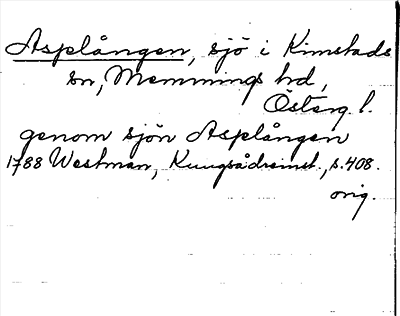 Asplången, sjö i Kimstads
sn, Memmings hd,
Österg l.
genom sjön Asplången
1788 Westman, s. 408.
orig.